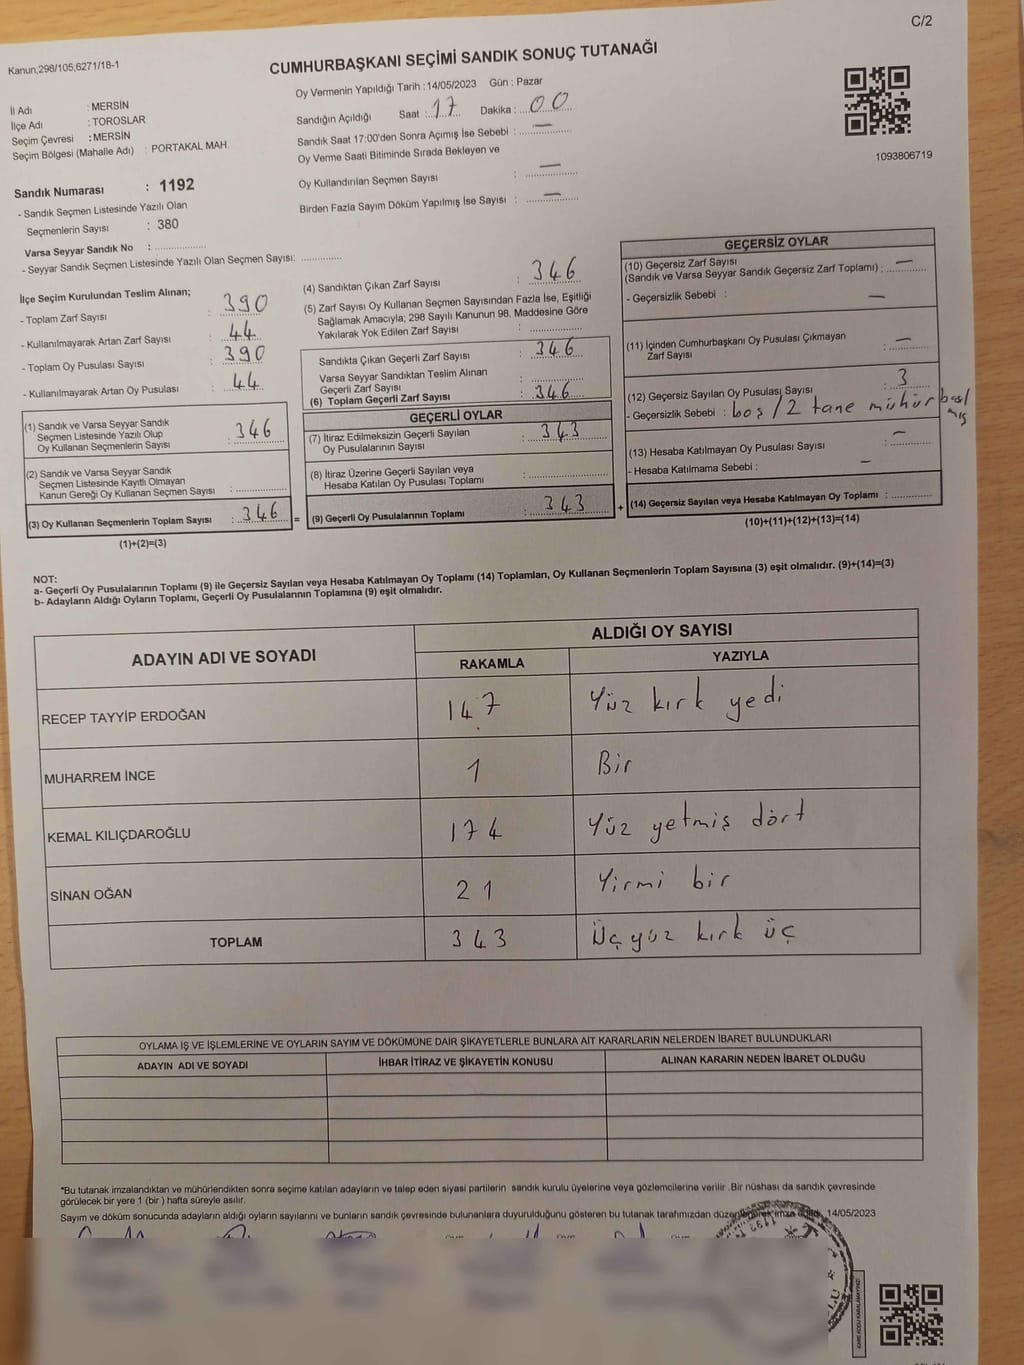 C/2
Kanun;298/105;6271/18-1
CUMHURBAŞKANI SEÇİMİ SANDIK SONUÇ TUTANAĞI
Oy Vermenin Yapıldığı Tarih : 14/05/2023 Gün : Pazar
İl Adı : MERSİN
İlçe Adı : TOROSLAR
Seçim Çevresi : MERSİN
Seçim Bölgesi (Mahalle Adı) : PORTAKAL MAH.
Sandığın Açıldığı Saat : 17 Dakika : 00
Sandık Saat 17:00'den Sonra Açımış İse Sebebi : —
Oy Verme Saati Bitiminde Sırada Bekleyen ve
Oy Kullandırılan Seçmen Sayısı : —
Birden Fazla Sayım Döküm Yapılmış İse Sayısı : —
1093806719
Sandık Numarası : 1192
- Sandık Seçmen Listesinde Yazılı Olan
Seçmenlerin Sayısı : 380
Varsa Seyyar Sandık No : ..............
- Seyyar Sandık Seçmen Listesinde Yazılı Olan Seçmen Sayısı: ..............
İlçe Seçim Kurulundan Teslim Alınan;
- Toplam Zarf Sayısı : 390
- Kullanılmayarak Artan Zarf Sayısı : 44
- Toplam Oy Pusulası Sayısı : 390
- Kullanılmayarak Artan Oy Pusulası : 44
(1) Sandık ve Varsa Seyyar Sandık
Seçmen Listesinde Yazılı Olup
Oy Kullanan Seçmenlerin Sayısı : 346
(2) Sandık ve Varsa Seyyar Sandık
Seçmen Listesinde Kayıtlı Olmayan
Kanun Gereği Oy Kullanan Seçmen Sayısı : ..............
(3) Oy Kullanan Seçmenlerin Toplam Sayısı : 346 =
(1)+(2)=(3)
(4) Sandıktan Çıkan Zarf Sayısı : 346
(5) Zarf Sayısı Oy Kullanan Seçmen Sayısından Fazla İse, Eşitliği
Sağlamak Amacıyla; 298 Sayılı Kanunun 98. Maddesine Göre
Yakılarak Yok Edilen Zarf Sayısı : ..............
Sandıkta Çıkan Geçerli Zarf Sayısı : 346
Varsa Seyyar Sandıktan Teslim Alınan
Geçerli Zarf Sayısı : ..............
(6) Toplam Geçerli Zarf Sayısı : 346
GEÇERLİ OYLAR
(7) İtiraz Edilmeksizin Geçerli Sayılan
Oy Pusulalarının Sayısı : 343
(8) İtiraz Üzerine Geçerli Sayılan veya
Hesaba Katılan Oy Pusulası Toplamı : ..............
(9) Geçerli Oy Pusulalarının Toplamı : 343 +
GEÇERSİZ OYLAR
(10) Geçersiz Zarf Sayısı
(Sandık ve Varsa Seyyar Sandık Geçersiz Zarf Toplamı) : —
- Geçersizlik Sebebi : —
(11) İçinden Cumhurbaşkanı Oy Pusulası Çıkmayan
Zarf Sayısı : —
(12) Geçersiz Sayılan Oy Pusulası Sayısı : 3
- Geçersizlik Sebebi : boş / 2 tane mühür basıl
mış
(13) Hesaba Katılmayan Oy Pusulası Sayısı : —
- Hesaba Katılmama Sebebi : —
(14) Geçersiz Sayılan veya Hesaba Katılmayan Oy Toplamı : ..............
(10)+(11)+(12)+(13)=(14)
NOT:
a- Geçerli Oy Pusulalarının Toplamı (9) ile Geçersiz Sayılan veya Hesaba Katılmayan Oy Toplamı (14) Toplamları, Oy Kullanan Seçmenlerin Toplam Sayısına (3) eşit olmalıdır. (9)+(14)=(3)
b- Adayların Aldığı Oyların Toplamı, Geçerli Oy Pusulalarının Toplamına (9) eşit olmalıdır.
ADAYIN ADI VE SOYADI ALDIĞI OY SAYISI
RAKAMLA YAZIYLA
RECEP TAYYİP ERDOĞAN 147 Yüz kırk yedi
MUHARREM İNCE 1 Bir
KEMAL KILIÇDAROĞLU 174 Yüz yetmiş dört
SİNAN OĞAN 21 Yirmi bir
TOPLAM 343 Üçyüz kırk üç
OYLAMA İŞ VE İŞLEMLERİNE VE OYLARIN SAYIM VE DÖKÜMÜNE DAİR ŞİKAYETLERLE BUNLARA AİT KARARLARIN NELERDEN İBARET BULUNDUKLARI
ADAYIN ADI VE SOYADI İHBAR İTİRAZ VE ŞİKAYETİN KONUSU ALINAN KARARIN NEDEN İBARET OLDUĞU
*Bu tutanak imzalandıktan ve mühürlendikten sonra seçime katılan adayların ve talep eden siyasi partilerin sandık kurulu üyelerine veya gözlemcilerine verilir .Bir nüshası da sandık çevresinde
görülecek bir yere 1 (bir ) hafta süreyle asılır.
Sayım ve döküm sonucunda adayların aldığı oyların sayılarını ve bunların sandık çevresinde bulunanlara duyurulduğunu gösteren bu tutanak tarafımızdan düzenlenerek imza edildi. 14/05/2023